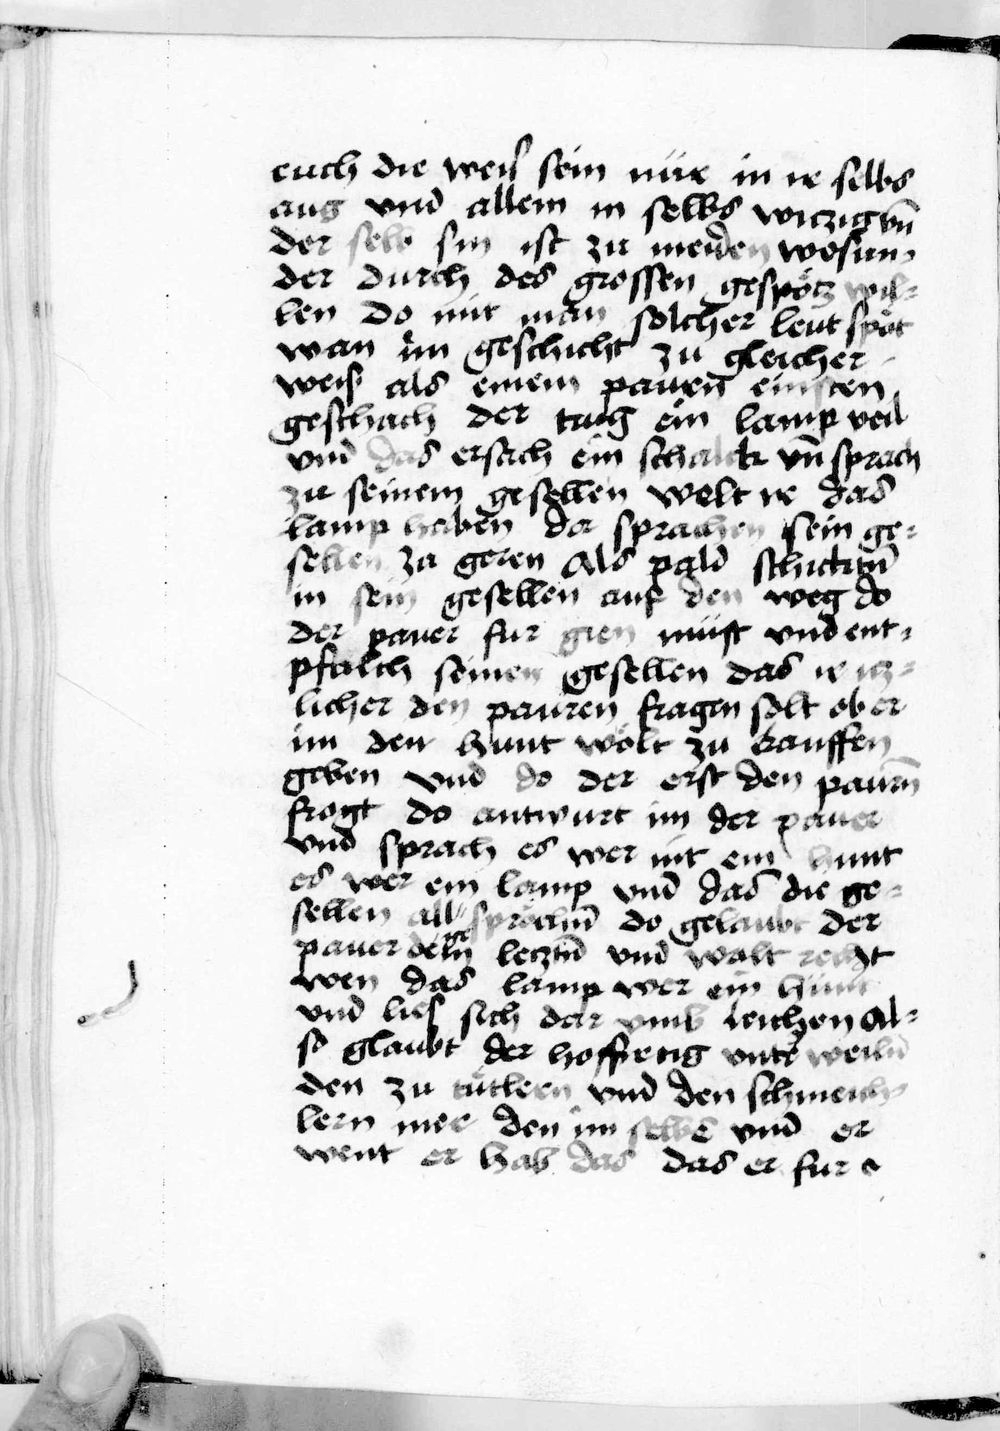 euch die weis sein nür in ir selbs
aug vnd allein in selbs wiczig vn̄
der selb sin ist zu meiden wesun¬
der durch des grossen gespötz wil¬
len Do mit man solcher leut spöt
wan im geschicht zu gleicher
weis als einem pauren̄ einsten
geschach der trug ein lamp veil
vnd das ersach ein schalck vn̄ sprach
zu seinem gesellen welt ir das
lamp haben da sprachen sein ge¬
sellen za geren Als pald schickt
in sein gesellen auf den weg do
der pauer fur gien müst vnd ent¬
pfalch seinen gesellen das ir icz¬
licher den pauren fragen solt ob er
im den hunt wölt zu kauffen
geben vnd do der erst den paurn̄
frogt do antwurt im der pauer
vnd sprach es wer nit ein hunt
es wer ein lamp vnd das die ge¬
sellen all sprächn̄ do gelaubt der
pauer dem lecztn̄ vnd walt recht
wen das lamp wer ein hunt
vnd lies sich dar vmb leichen Al¬
so glaubt der hoffretig vnter weiln̄
den zu tütlern vnd den schmeich¬
lern mer den im selbē vnd er
went er hab das das er fur